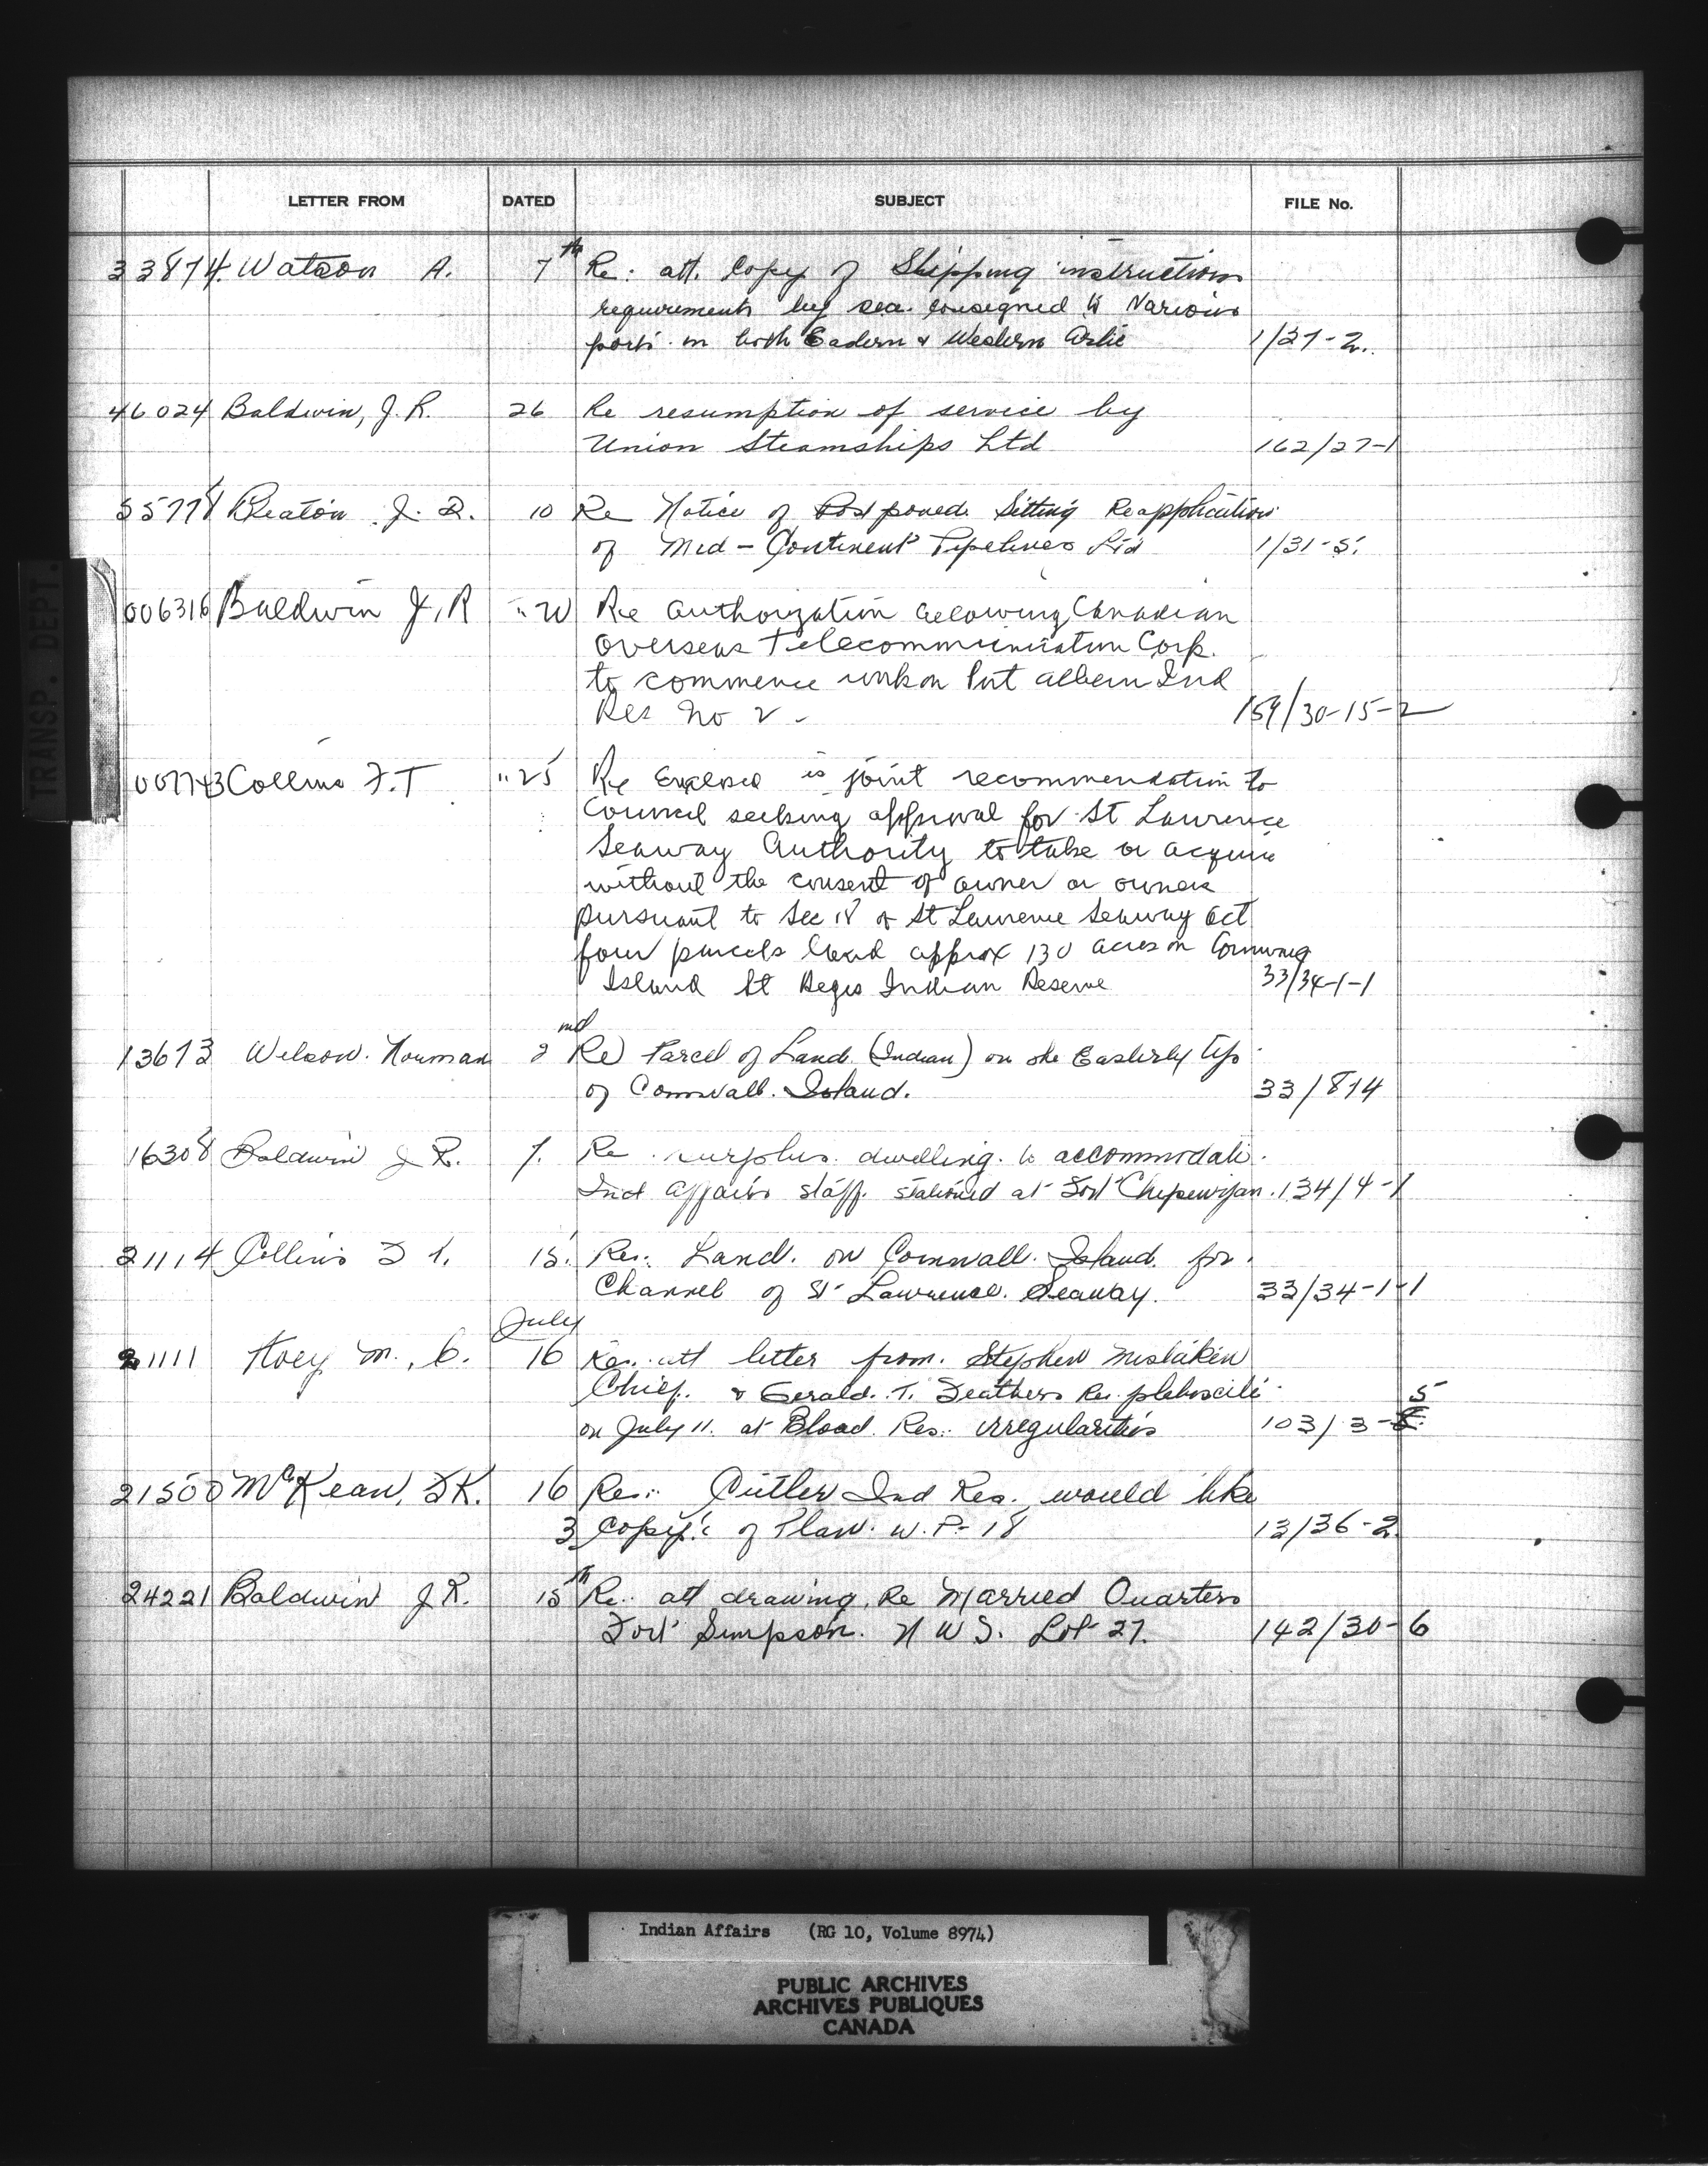 LETTER FROM DATED SUBJECT FILE No.
33874. Watson A. 7th Re: att. Copy of Shipping instructions
requirements by sea consigned to Various
ports in both Eastern & Western Artic 1/27-2.
46024 Baldwin, J.R. 26 Re resumption of service by
Union Steamships Ltd 162/27-1
55778 Beaton J. D. 10 Re Notice of Postponed Sitting Re application
of Mid-Continent Pipelines Ltd 1/31-5.
006316 Baldwin J,R " 20 Re Authorization allowing Canadian
Overseas Telecommunication Corp.
to commence work on Port Alberni Ind
Res No 2 - 159/30-15-2
007743 Collins F.T " 25 Re Enclosed is joint recommendation to
Council seeking approval for St Lawrence
Seaway Authority to take or acquire
without the consent of owner or owners
pursuant to Sec 18 of St Lawrence Seaway Act
four parcels land approx 130 acres on Cornwall
Island St Regis Indian Reserve 33/34-1-1
13673 Wilson. Norman 2nd Re Parcel of Land (Indian) on the Easterly tip
of Cornwall. Island. 33/874
16308 Baldwin J R. 7. Re surplus dwelling to accommodate
Ind Affairs staff. stationed at Fort Chipewyan. 134/4-1
21114 Collins F T. 15. Re: Land. on Cornwall. Island. for
Channel of St Lawrence. Seaway. 33/34-1-1
July
21111 Hoey M., C. 16 Re: att letter from. Stephen Mistaken
Chief. & Gerald. T. Feathers Re. plebiscite
on July 11. at Blood. Res.: irregularities 103/3-5
21500 McKean, F K. 16 Re: Cutler Ind Res. would like
3 Copy's of Plan. W.P-18 13/36-2
24221 Baldwin J R. 15th Re: att drawing, Re Married Quarters
Fort Simpson. N W T. Lot 27. 142/30-6
TRANSP. DEPT.
Indian Affairs (RG 10, Volume 8974)
PUBLIC ARCHIVES
ARCHIVES PUBLIQUES
CANADA